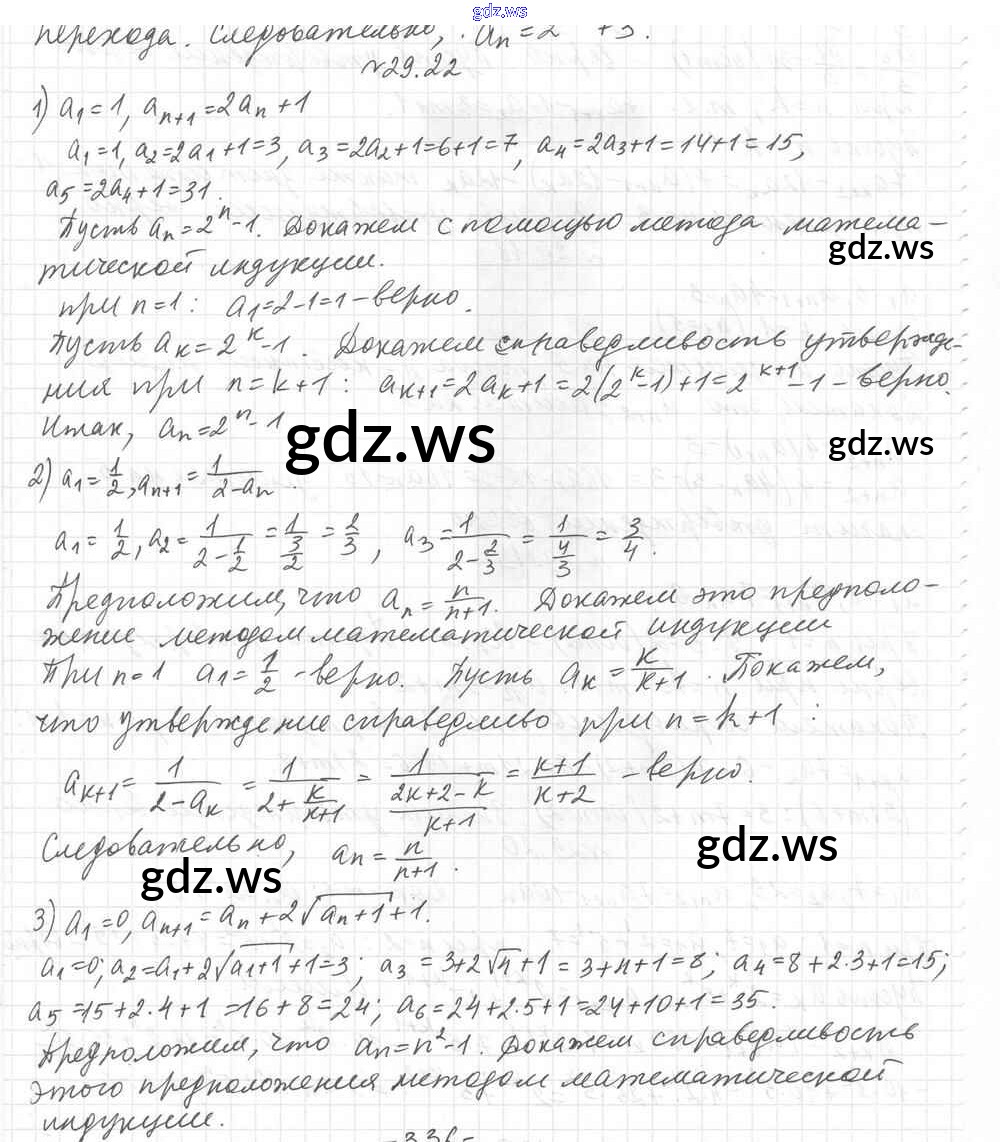 gdz.ws
перехода. Следовательно, aₙ = 2 + 3.
№29.22
1) a₁ = 1, aₙ₊₁ = 2aₙ + 1
a₁ = 1, a₂ = 2a₁ + 1 = 3, a₃ = 2a₂ + 1 = 6 + 1 = 7, a₄ = 2a₃ + 1 = 14 + 1 = 15,
a₅ = 2a₄ + 1 = 31.
Пусть aₙ = 2ⁿ - 1. Докажем с помощью метода матема-
gdz.ws
тической индукции.
при n = 1: a₁ = 2 - 1 = 1 - верно.
Пусть aₖ = 2ᵏ - 1. Докажем справедливость утвержде-
ния при n = k + 1: aₖ₊₁ = 2aₖ + 1 = 2(2ᵏ - 1) + 1 = 2ᵏ⁺¹ - 1 - верно.
Итак, aₙ = 2ⁿ - 1
gdz.ws
gdz.ws
2) a₁ = 1/2, aₙ₊₁ = 1/(2 - aₙ).
a₁ = 1/2, a₂ = 1/(2 - 1/2) = 1/(3/2) = 2/3, a₃ = 1/(2 - 2/3) = 1/(4/3) = 3/4.
Предположим, что aₙ = n/(n+1). Докажем это предполо-
жение методом математической индукции
При n = 1 a₁ = 1/2 - верно. Пусть aₖ = k/(k+1). Покажем,
что утверждение справедливо при n = k + 1:
aₖ₊₁ = 1/(2 - aₖ) = 1/(2 + k/(k+1)) = 1/((2k+2-k)/(k+1)) = (k+1)/(k+2) - верно.
Следовательно, aₙ = n/(n+1).
gdz.ws
gdz.ws
3) a₁ = 0, aₙ₊₁ = aₙ + 2√(aₙ + 1) + 1.
a₁ = 0; a₂ = a₁ + 2√(a₁+1) + 1 = 3; a₃ = 3 + 2√4 + 1 = 3 + 4 + 1 = 8; a₄ = 8 + 2·3 + 1 = 15;
a₅ = 15 + 2·4 + 1 = 16 + 8 = 24; a₆ = 24 + 2·5 + 1 = 24 + 10 + 1 = 35.
Предположим, что aₙ = n² - 1. Докажем справедливость
этого предположения методом математической
индукции.